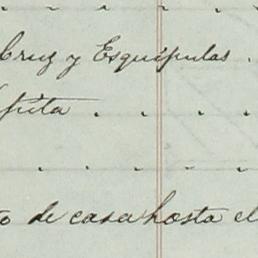 Cruz y Esquipulas .
pita . . . .
. . . . .
to de casa hasta el